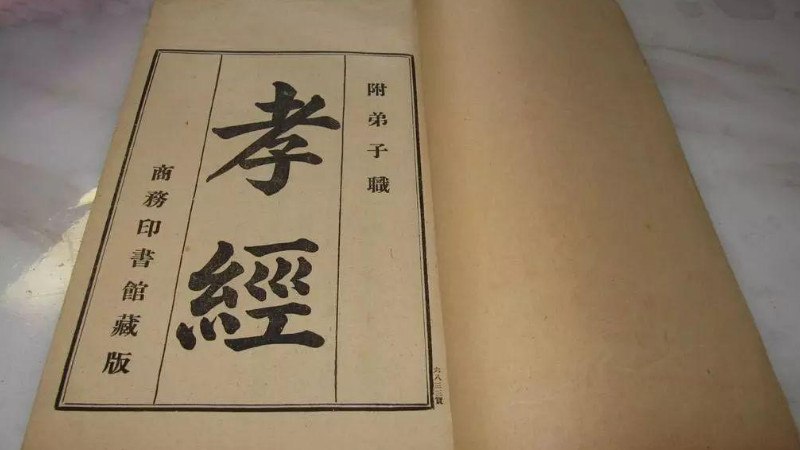 附弟子職
孝經
商務印書館藏版